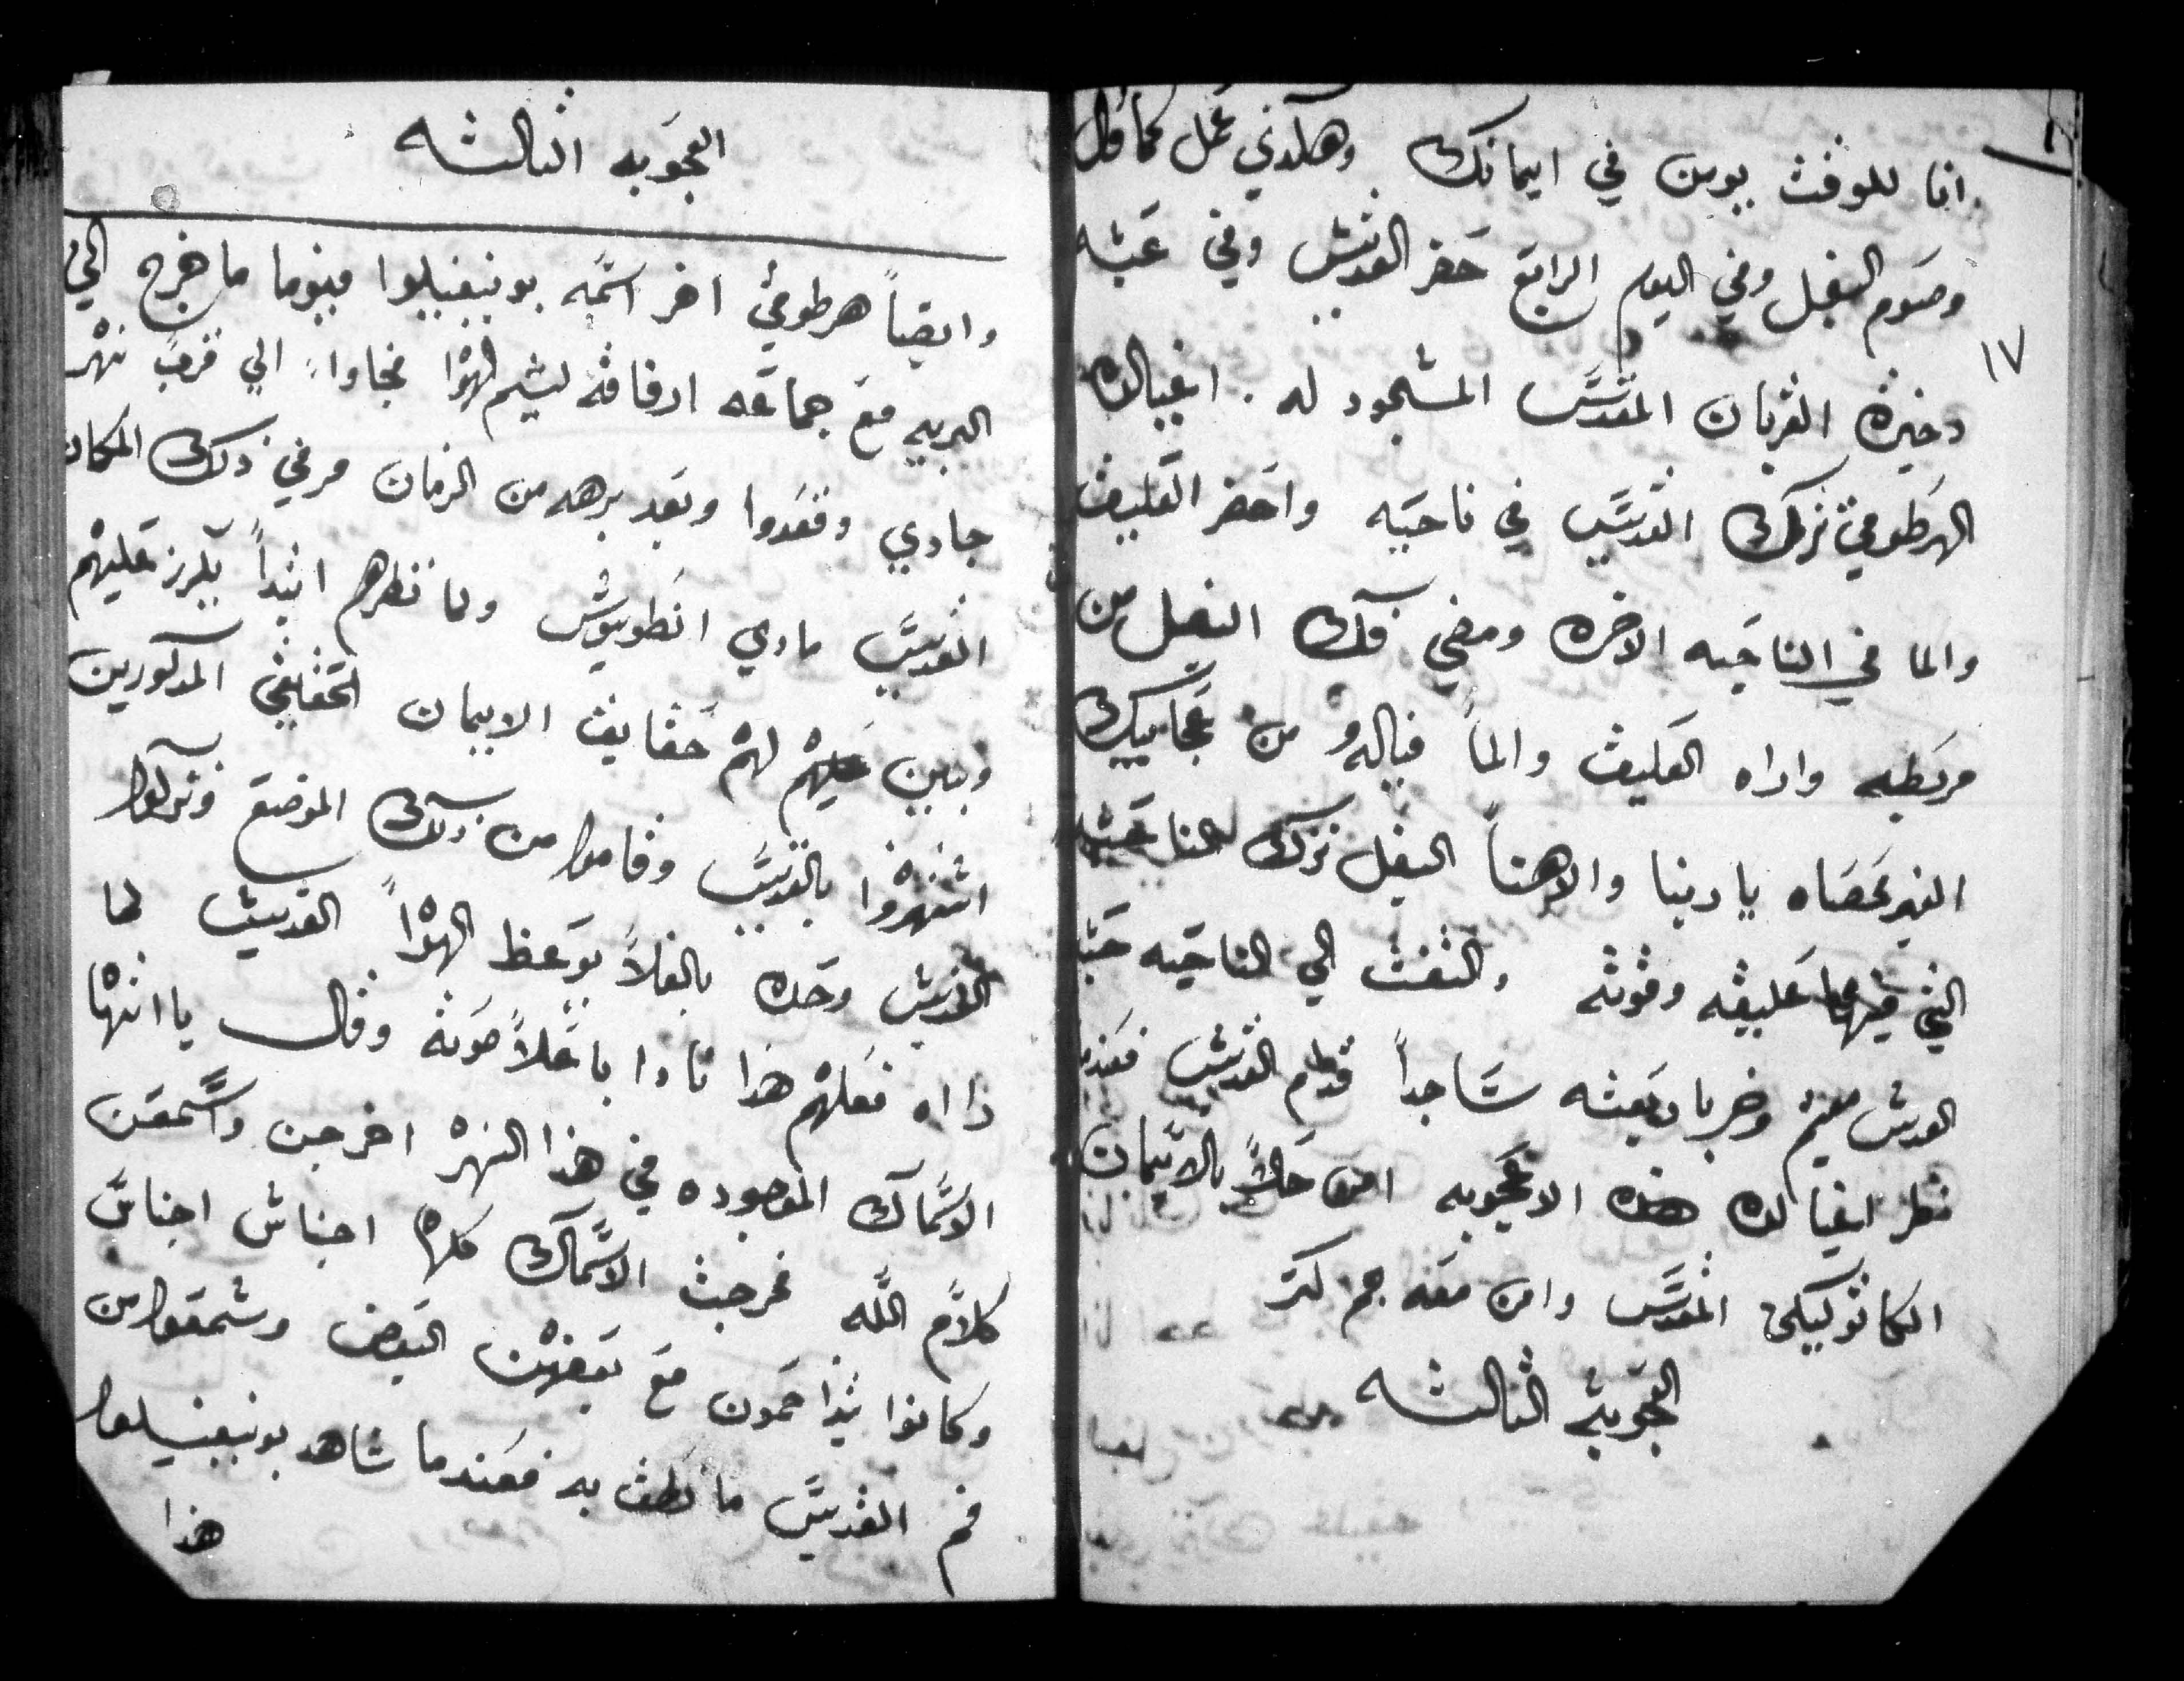 انا للوقت بومن في ايمانك وهكدي عمل كما قال
وصوم البغل وفي اليوم الرابع حضر القديس وفي عبثه
دخيرة القربان المقدس المسجود له . ايفيالده
الهرطوقي ترك القديس في ناحيه واحضر العليق
والما في الناحيه الاخره ومضي فك البغل من
مربطه واراه العليق والما فيالهو من عجاييبك
الغير محصاه يا ربنا والاهنا البغل ترك الناحيه
التي فيها عليقه وقوته والتفت الي الناحيه حيث
القديس مقيم وخر باربعته ساجداً قدام القديس فعندما
نظر ايفيالده هذه الاعجوبه امن حالاً بالايمان
الكاتوليكي المقدس وامن معه جم كتر
العجوبة الثالثه
١٧
العجوبه الثالثه
وايضاً هرطوقي اخر اسمه بونيفيليوا فيوما ما خرج الي
البريه مع جماعه ارفاقه ليشم الهوا فجاوا الي قرب نهر
جاري وقعدوا وبعد برهه من الزمان مر في دلك المكان
القديس ماري انطونيوس ولما نظرهم ابتداً يكرز عليهم
ويبين لهم حقايق الايمان الحقيقي المدكورين
اشتهزوا بالقديس وقاموا من دلك الموضع وتركوا
القديس وحده بالفلا يوعظ الهوا القديس لما
را اه فعلهم هذا نادا باعلا صوته وقال يا ايتها
الاسماك الموجوده في هذا النهر اخرجن واسمعن
كلام الله فخرجت الاسماك كلها اجناس اجناس
وكانوا يتزاحمون مع بعضهن البعض وسمعوا من
فم القديس ما نطق به فعندما شاهد بونيفيليوا
هذا